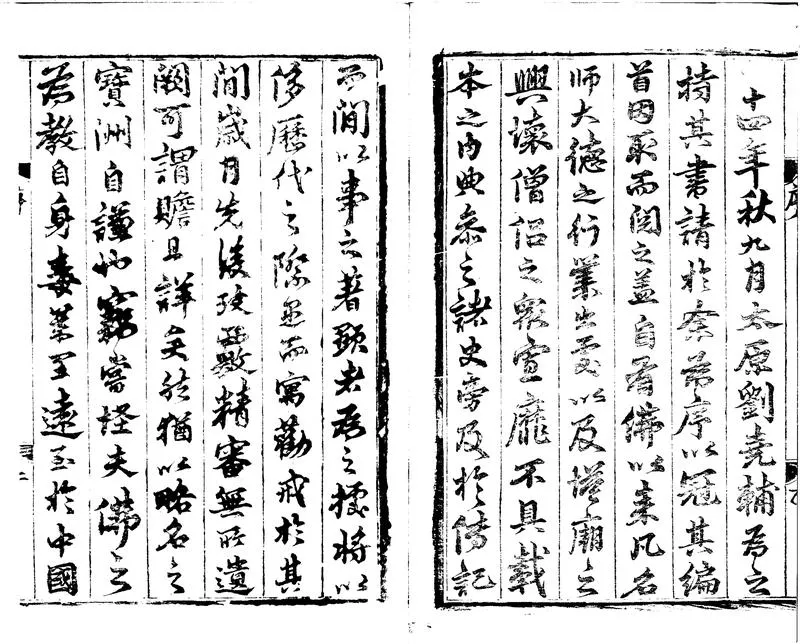 十四年秋九月太原劉堯輔為之
持其書請於余為序以冠其編
首因取而閱之蓋自有佛以來凡名
師大德之行業出處以及塔廟之
興壞僧侶之衆寡靡不具載
本之內典參之諸史旁及於傳記
而間以事之著顯者為之據將以
侈歷代之際遇而寓勸戒於其
間歲月先後攷覈精審無所遺
闕可謂贍且詳矣然猶以略名之
寶洲自謙也竊嘗怪夫佛之
為教自身毒萬里遠至於中國